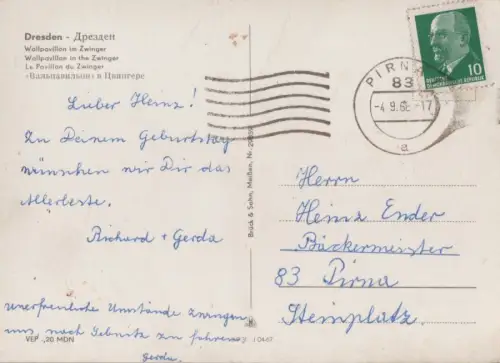 Dresden - Дрезден
Wallpavillon im Zwinger
Wallpavilion in the Zwinger
Le Pavillon du Zwinger
«Вальпавильон» в Цвингере
Lieber Heinz!
Zu Deinem Geburtstag
wünschen wir Dir das
Allerbeste.
Richard + Gerda
unerfreuliche Umstände zwingen
uns, nach Sebnitz zu fahren
Gerda.
VEP -,20 MDN
Brück & Sohn, Meißen, Nr.
PIRNA
83
-4.9.6 -17
a
10
DEUTSCHE
DEMOKRATISCHE REPUBLIK
Herrn
Heinz Ender
Bäckermeister
83 Pirna
Steinplatz.